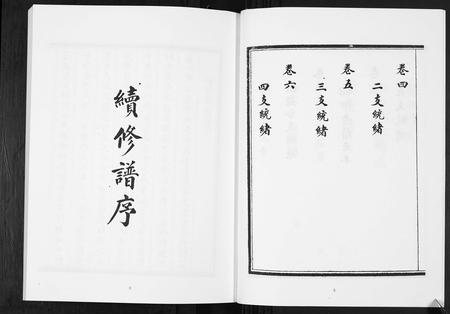 卷四
二支統緒
卷五
三支統緒
卷六
四支統緒
續修譜序